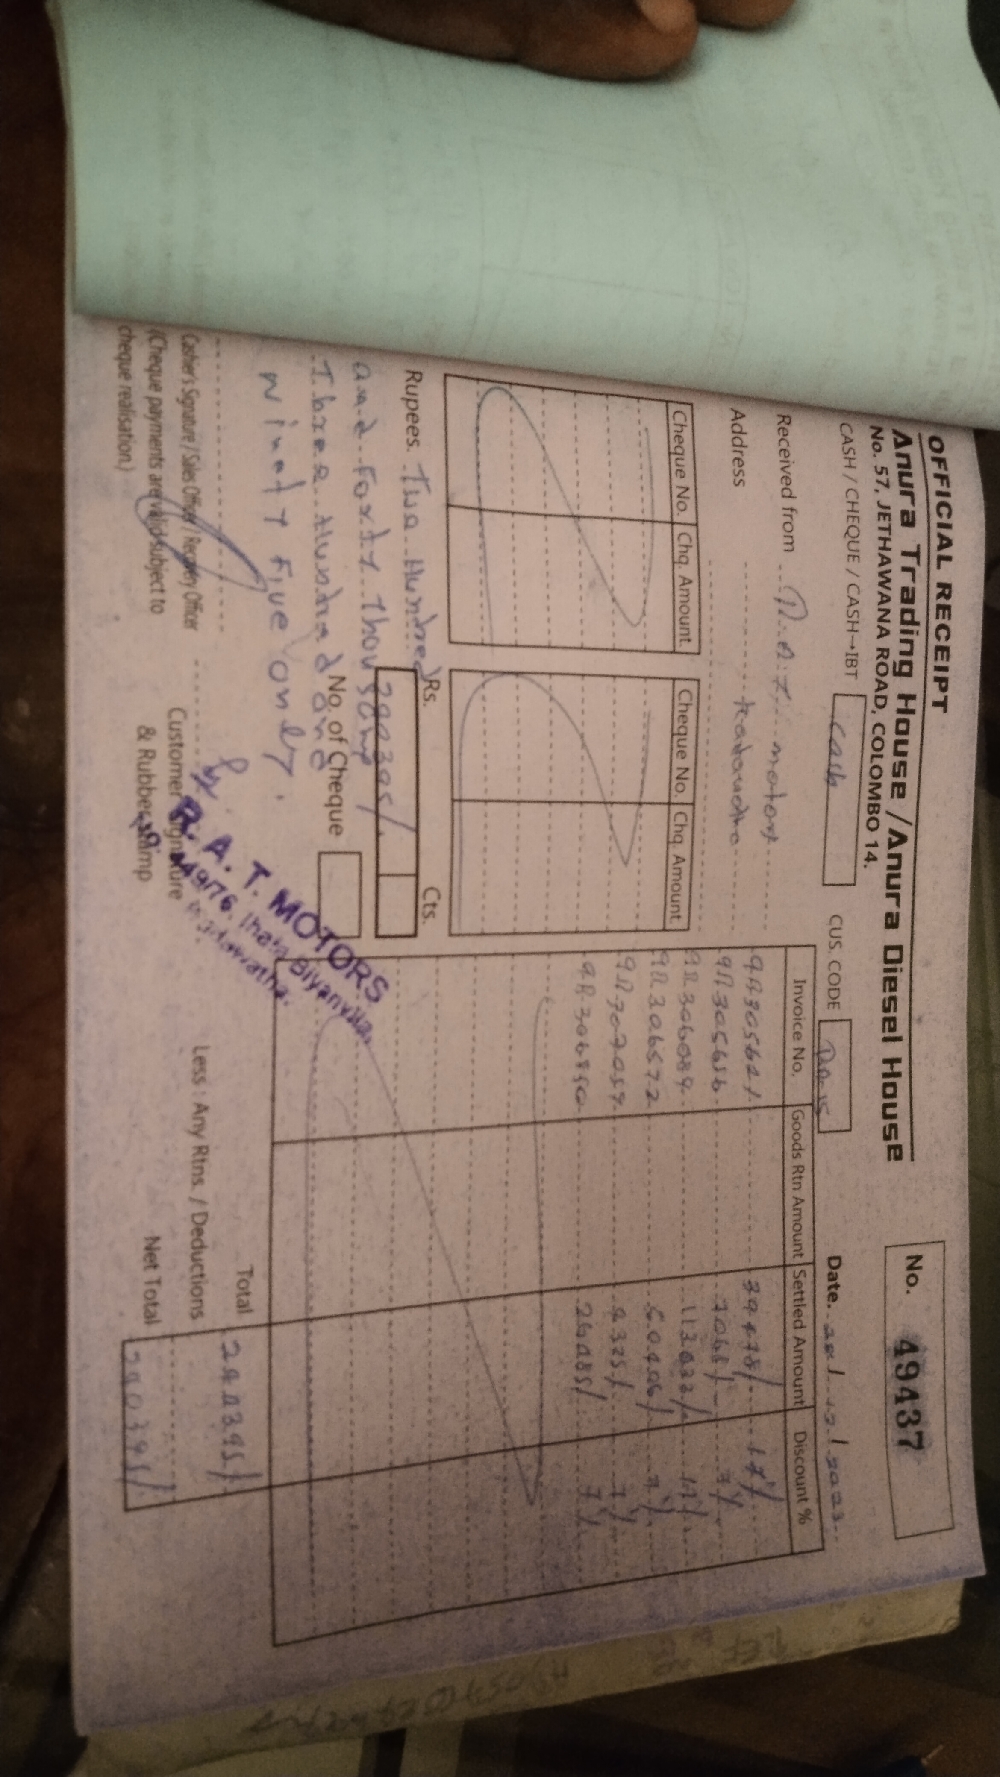 OFFICIAL RECEIPT
Anura Trading House / Anura Diesel House
No. 57, JETHAWANA ROAD, COLOMBO 14.
No. 49437
CASH / CHEQUE / CASH→IBT Cash CUS. CODE
Date. 2023
Received from R.A.T. motors
Address
Cheque No. Chq. Amount Cheque No. Chq. Amount
Invoice No. Goods Rtn Amount Settled Amount Discount %
9R305656 7068/-
9R306089 113033/-
9R306572
9R307059 4325/- 7%
26085/- 7%
Rs. Cts.
240395/.
Rupees. Two Hundred
and Forty Thousand
Three Hundred and
Ninety Five only.
No. of Cheque
Total 240395/.
Less : Any Rtns. / Deductions
Net Total 240395/.
Cashier's Signature / Sales Officer / Recovery Officer
(Cheque payments are valid subject to
cheque realisation.)
Customer Signature
& Rubber Stamp
R. A. T. MOTORS
Ihala Biyanwila,
Kadawatha.